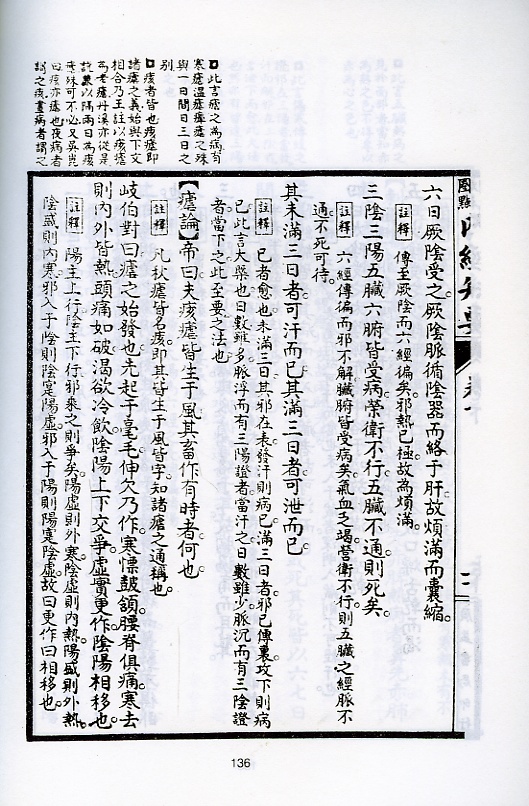 圈點內經知要
六日厥陰受之厥陰脈循陰器而絡于肝故煩滿而囊縮。
註釋 傳至厥陰而六經徧矣。邪熱已極故為煩滿。
三陰三陽五臟六腑皆受病榮衛不行五臟不通則死矣。
註釋 六經傳徧而邪不解臟腑皆受病矣氣血乏竭營衛不行則五臟之經脈不
通不死可待。
其未滿三日者可汗而已其滿三日者可泄而已
註釋 已者愈也未滿三日其邪在表發汗則病已滿三日者邪已傳裏攻下則病
已此言大槩也日數雖多脈浮而有三陽證者當汗之日數雖少脈沉而有三陰證
者當下之此至要之法也
【瘧論】帝曰夫痎瘧皆生于風其畜作有時者何也
註釋 凡秋瘧皆名痎即其皆生于風皆字知諸瘧之通稱也
岐伯對曰瘧之始發也先起于毫毛伸欠乃作寒慄鼓頷腰脊俱痛寒去
則內外皆熱頭痛如破渴欲冷飲陰陽上下交爭虛實更作陰陽相移也
註釋 陽主上行陰主下行邪乘之則爭矣陽虛則外寒陰虛則內熱陽盛則外熱
陰盛則內寒邪入于陰則陰實陽虛邪入于陽則陽實陰虛故曰更作曰相移也
此言瘧之為病有
寒瘧溫瘧癉瘧之殊
與一日間日三日之
別
痎者皆也痎瘧即
諸瘧之義始與下文
相合乃王註以痎瘧
為老瘧丹溪亦從是
說以隔兩日為痎
瘧殊可不必又吳崑
曰痎亦瘧也夜病者
謂之痎晝病者謂之
136